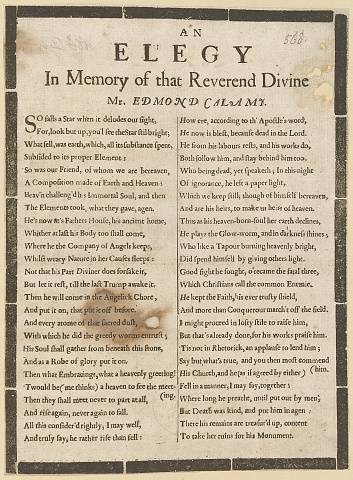 AN
ELEGY
568
In Memory of that Reverend Divine
Mr. EDMOND CALAMY.
SO falls a Star when it deludes our sight,
For, look but up, you'l see the Star still bright;
What fell, was earth, which, all its substance spent,
Subsided to its proper Element:
So was our Friend, of whom we are bereaven,
A Composition made of Earth and Heaven:
Heav'n challeng'd his Immortal Soul, and then
The Elements took, what they gave, agen.
He's now at's Fathers House, his ancient home,
Whither at last his Body too shall come,
Where he the Company of Angels keeps,
Whilst weary Nature in her Causes sleeps:
Not that his Part Diviner does forsake it,
But let it rest, till the last Trump awake it.
Then he will come in the Angelick Chore,
And put it on, that put it off before.
And every atome of that sacred dust,
With which he did the greedy worms entrust;
His Soul shall gather from beneath this stone,
And as a Robe of glory put it on.
Then what Embracings, what a heavenly greeting!
'Twould be (me thinks) a heaven to see the meet-
Then they shall meet never to part at all, (ing.
And rise again, never again to fall.
All this consider'd rightly, I may well,
And truly say, he rather rise than fell:
How ere, according to th' Apostle's word,
He now is blest, because dead in the Lord.
He from his labours rests, and his works do,
Both follow him, and stay behind him too.
Who being dead, yet speaketh; so this night
Of ignorance, he left a paper light,
Which we keep still, though of himself bereaven,
And are his heirs, to make us heirs of heaven.
Thus as his heaven-born-soul her earth declines,
He playes the Glow-worm, and in darkness shines;
Who like a Tapour burning heavenly bright,
Did spend himself by giving others light.
Good fight he fought, o'recame the fatal three,
Which Christians call the common Enemie.
He kept the Faith, his ever trusty shield,
And more than Conquerour march't off the field.
I might proceed in lofty stile to raise him,
But that's already done, for his works praise him.
'Tis not in Rhetorick, an applause to lend him;
Say but what's true, and you then most commend
His Church, and he (as it agreed by either) (him.
Fell in a manner, I may say, together;
Where long he preacht, until put out by men;
But Death was kind, and put him in agen:
There his remains are treasur'd up, content
To take her ruins for his Monument.